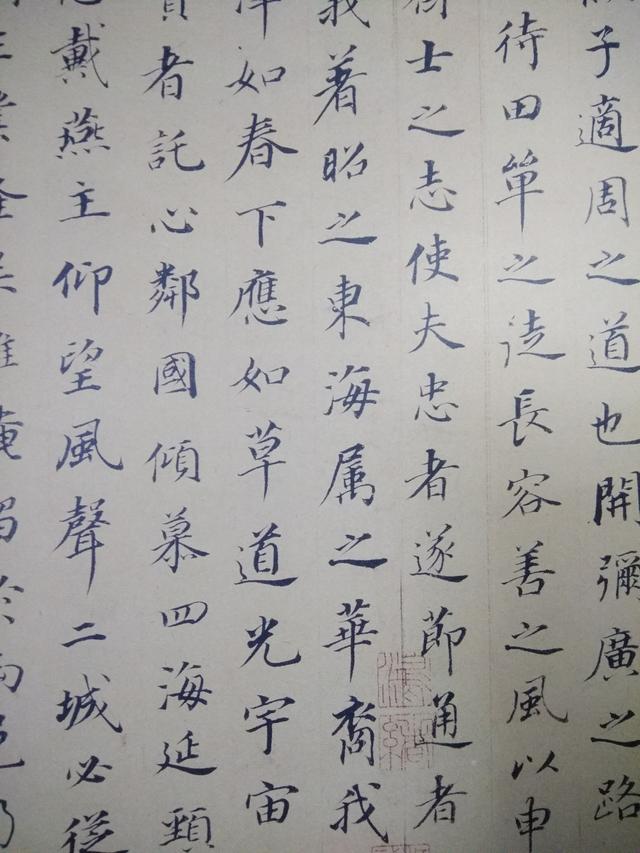 子適周之道也開彌廣之路
待田單之徒長容善之風以申
士之志使夫忠者遂節通者
我著昭之東海属之華裔我
澤如春下應如草道光宇宙
者託心鄰國傾慕四海延頸
戴燕主仰望風聲二城必從
業隆矣雖淹留於兩邑乃